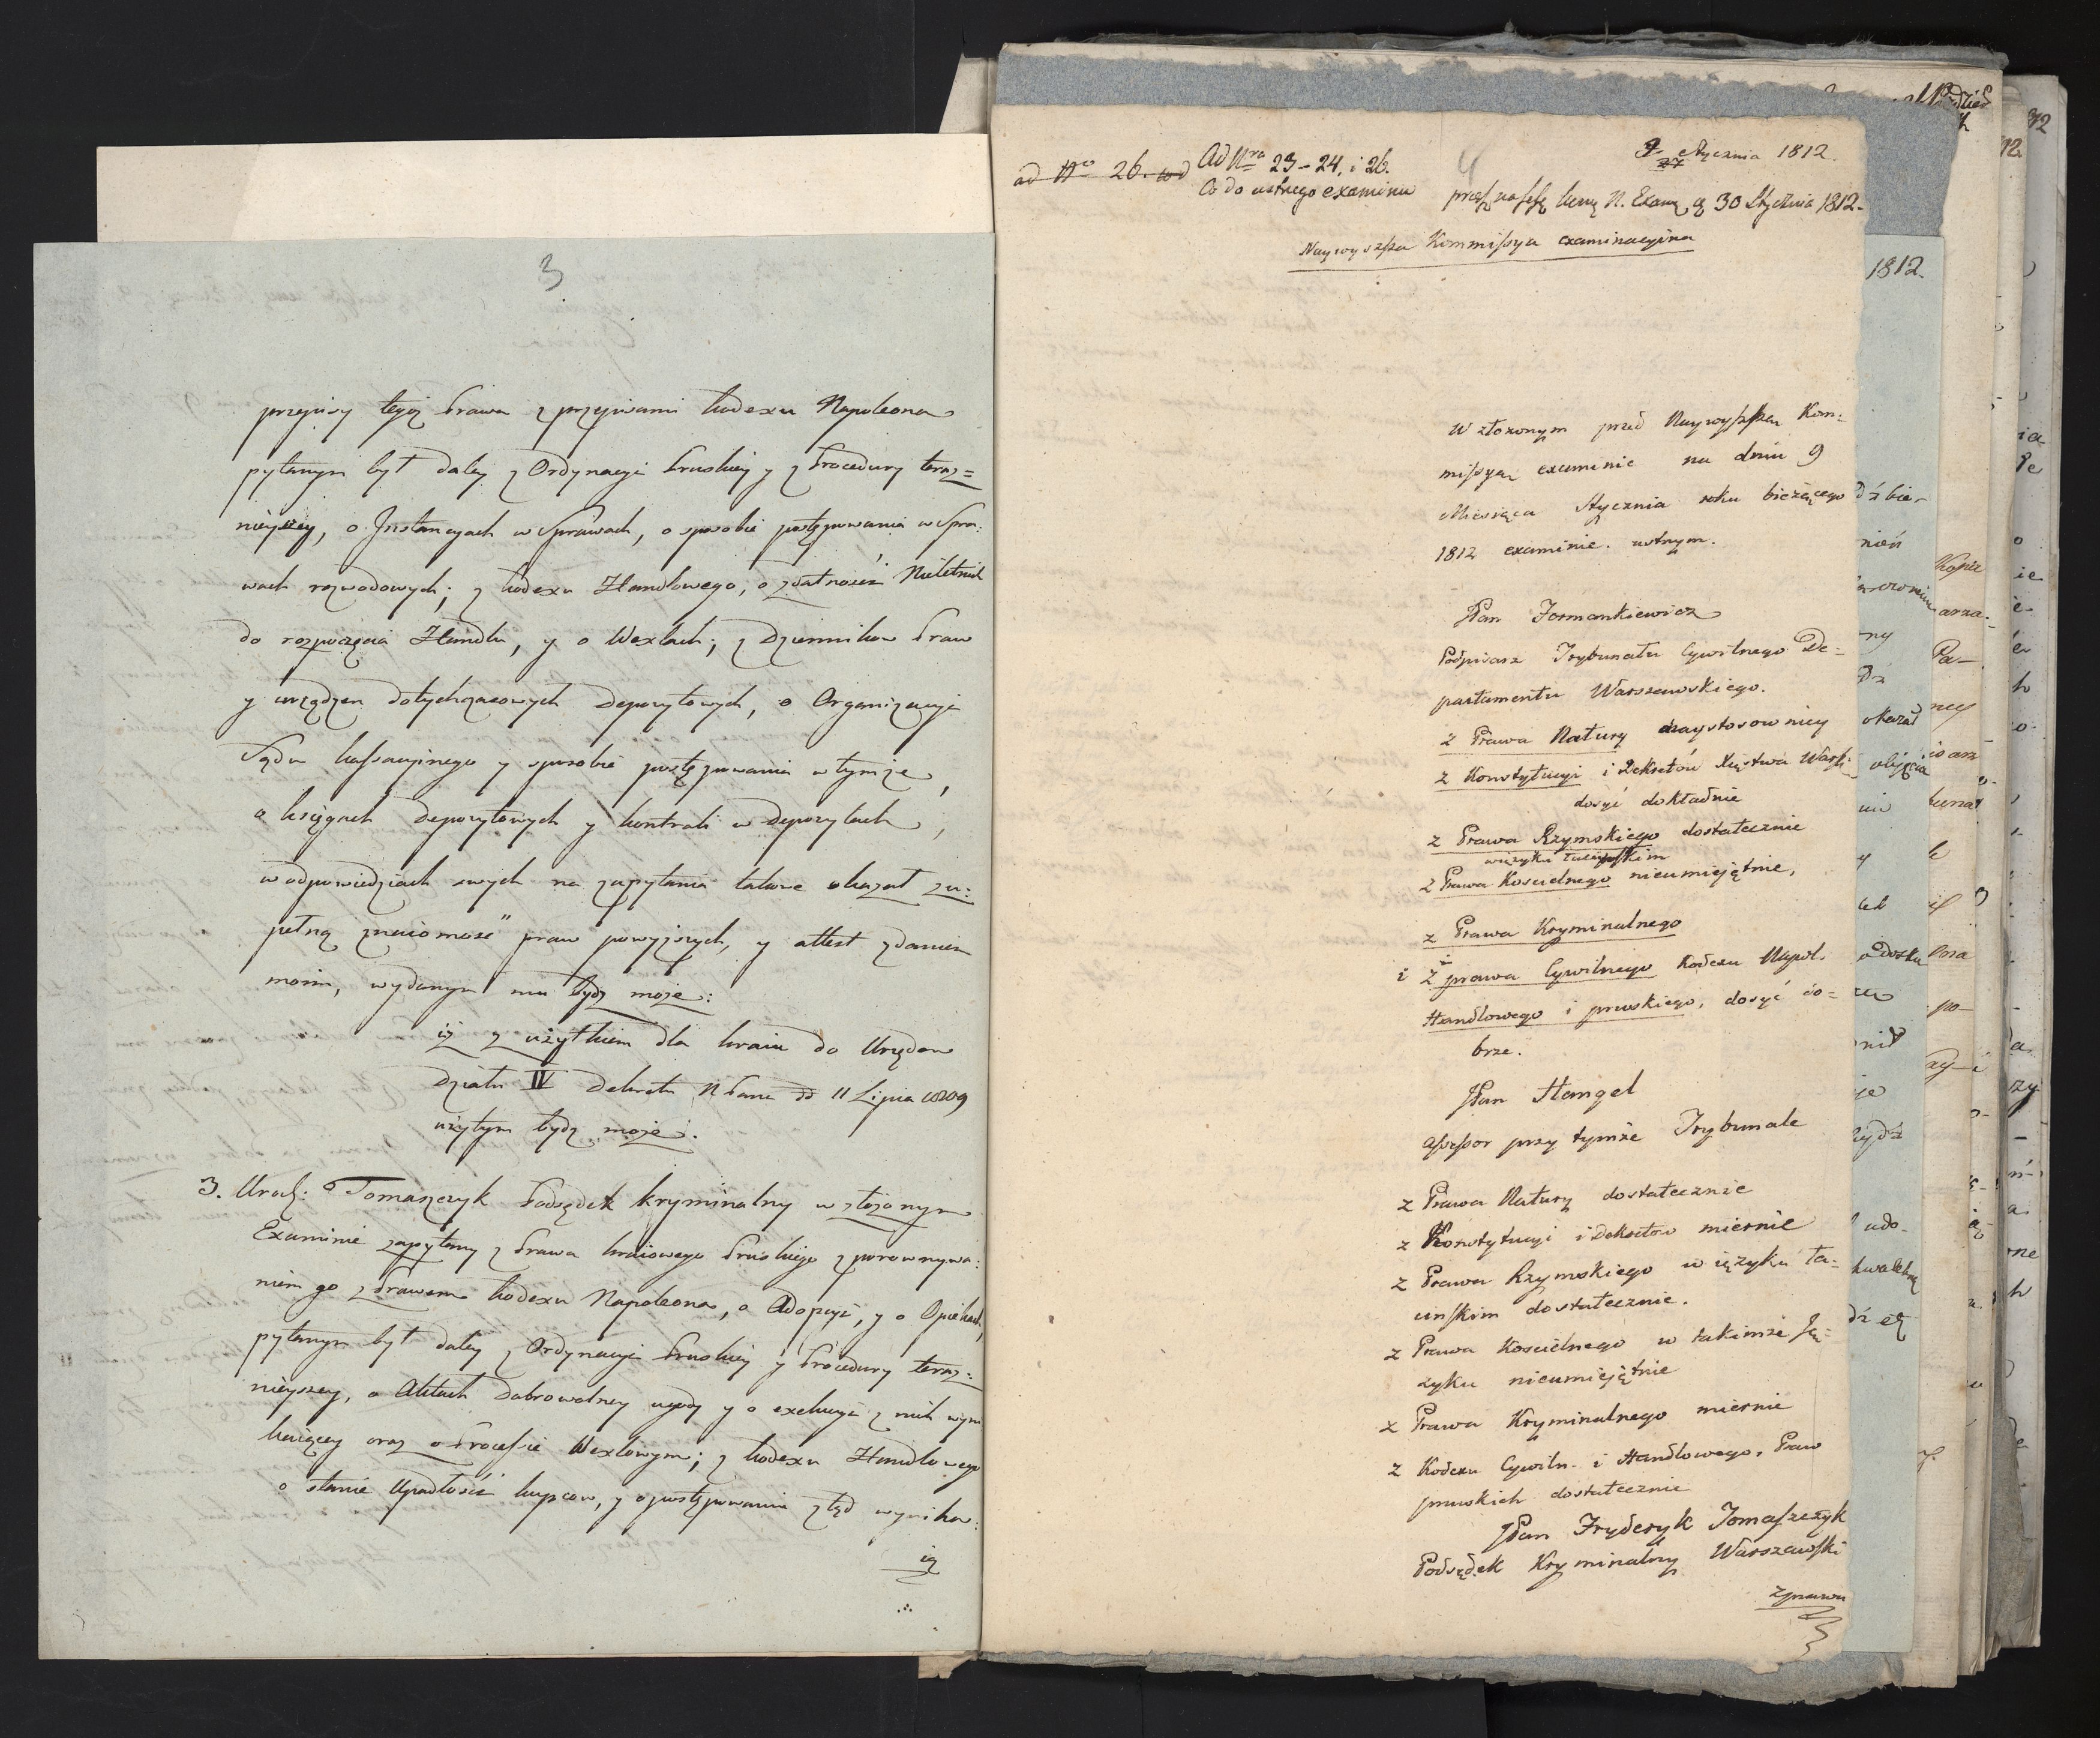 3
przepisy tegoż Prawa z przepisami Kodexu Napoleona
pytanym był daley z Ordynacyi Pruskiey y z Procedury teraz=
nieyszey, o Instancyach w Sprawach, o sposobie postępowania w Spra:
wach rozwodowych; z Kodexu Handlowego, o zdatności Nieletnich
do rozpoczęcia Handlu, y o Wexlach; z Dziennikow Praw
y urządzeń dotychczasowych Depozytowych, o Organizacyi
Sądu Kassacyinego y sposobie postępowania w tymże,
o księgach depozytowych y kontroli w depozytach,
w odpowiedziach swych na zapytania takowe okazał zu:
pełną znaiomość praw powyższych, y attest zdaniem
moim, wydanym mu bydź może:
iż z użytkiem dla kraiu do Urzędow
działu IV Dekretu N Pana dd 11 Lipca 1809
użytym bydź może.
3. Urodz: Tomaszczyk Podsędek kryminalny w złożonym
Examinie zapytany z Prawa kraiowego Pruskiego z porownywa:
niem go z Prawem Kodexu Napoleona, o Adopcyi, y o Opiekach,
pytanym był daley z Ordynacyi Pruskiey y Procedury teraz:
nieyszey, o Aktach dobrowolney ugody y o exekucyi z nich wyni
kaiącey oraz o Procesie Wexlowym; z Kodexu Handlowego
o stanie Upadłości kupcow, y o postępowaniu ztąd wynika:
ią
ad Nro 26. ad
Ad Nra 23-24, i 26.
Co do ustnego examinu
4
9 Stycznia 1812.
27
30 Stycznia 1812.
Naywyższa Kommissya examinacyina
W złożonym przed Naywyższą Kom=
missyą examinie na dniu 9
Miesiąca Stycznia roku bieżącego
1812 examinie ustnym.
JPan Formankiewicz
Podpisarz Trybunału Cywilnego De=
partamentu Warszawskiego.
z Prawa Natury naystosowniey
z Konstytucyi i Dekretów Xięstwa Warsz:
dosyć dokładnie
z Prawa Rzymskiego dostatecznie
w ięzyku łacińskim
z Prawa Kościelnego nieumiejętnie,
z Prawa Kryminalnego
i z prawa Cywilnego Kodexu Napol.
Handlowego i pruskiego, dosyć do=
brze.
JPan Hangel
Assessor przy tymże Trybunale
z Prawa Natury dostatecznie
z Konstytucyi i Dekretow miernie
z Prawa Rzymskiego w ięzyku ła=
cinskim dostatecznie.
z Prawa Kościelnego w takimże Ję=
zyku nieumiejętnie
z Prawa Kryminalnego miernie
z Kodexu Cywiln. i Handlowego, Praw
pruskich dostatecznie
JPan Fryderyk Tomaszczyk
Podsędek Kryminalny Warszawski
z prawa
1812.